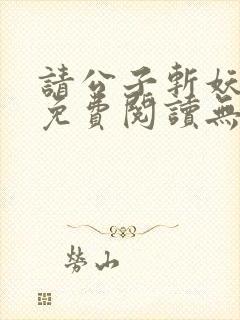 請公子斬妖
免費閱讀無
勞山